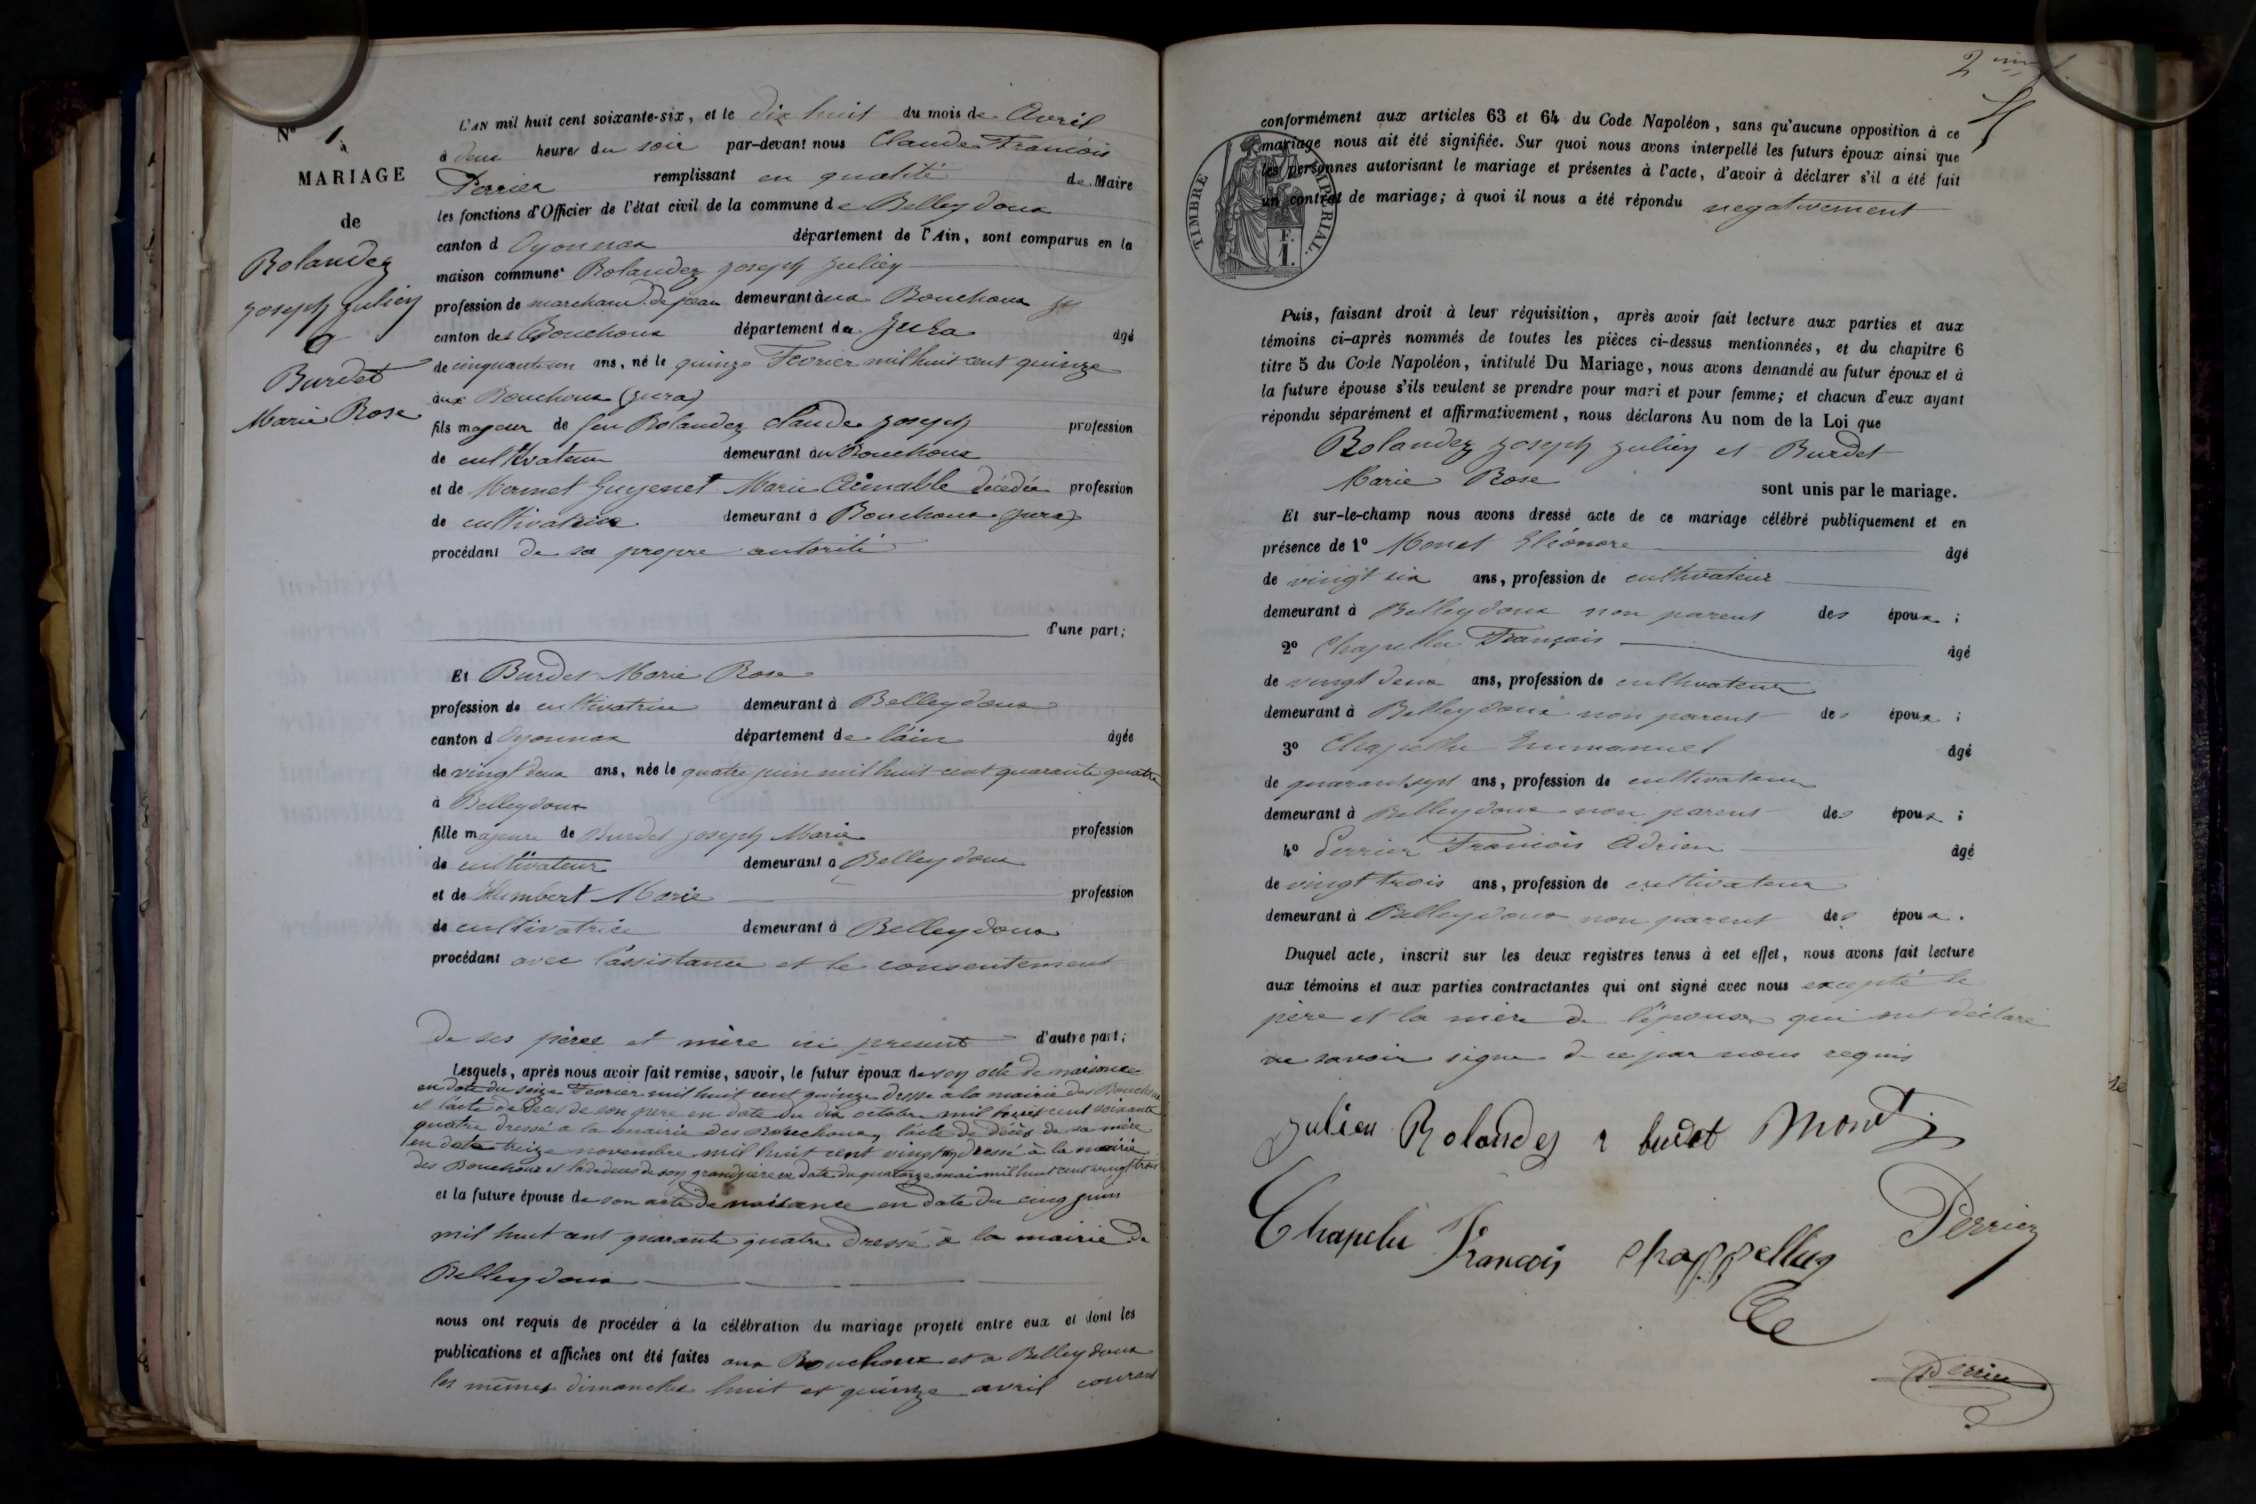 N° 1
MARIAGE
de
Rolandez
Joseph Julien
&
Burdet
Marie Rose
L'AN mil huit cent soixante-six, et le dix huit du mois de Avril
à deux heures du soir par-devant nous Claude François
Perrier remplissant en qualité de Maire
les fonctions d'Officier de l'état civil de la commune de Belleydoux
canton d Oyonnax département de l'Ain, sont comparus en la
maison commune Rolandez Joseph Julien
profession de marchand de peau demeurant à ux Bouchoux
canton des Bouchoux département du Jura âgé
de cinquante un ans, né le quinze Fevrier mil huit cent quinze
aux Bouchoux (Jura)
fils majeur de feu Rolandez Claude Joseph profession
de cultivateur demeurant au Bouchoux
et de Mermet Guyenet Marie Aimable décédée profession
de cultivatrice demeurant à Bouchoux (Jura)
procédant de sa propre autorité
d'une part;
Et Burdet Marie Rose
profession de cultivatrice demeurant à Belleydoux
canton d Oyonnax département de l'ain âgée
de vingt deux ans, née le quatre juin mil huit cent quarante quatre
à Belleydoux
fille majeure de Burdet Joseph Marie profession
de cultivateur demeurant à Belleydoux
et de Humbert Marie profession
de cultivatrice demeurant à Belleydoux
procédant avec l'assistance et le consentement
de ses père et mère ici present d'autre part;
Lesquels, après nous avoir fait remise, savoir, le futur époux de son acte de naissance
en date du seize Fevrier mil huit cent quinze dressé a la mairie des Bouchoux
et l'acte de deces de son pere en date du dix octobre mil huit cent soixante
quatre dressé a la mairie des Bouchoux, l'acte de décès de sa mère
en date treize novembre mil huit cent vingt dressé à la mairie
des Bouchoux et l'a de deces de son grand père en date du quatorze mai mil huit cent vingt trois
et la future épouse de son acte de naissance en date du cinq juin
mil huit cent quarante quatre dressé à la mairie de
Belleydoux
nous ont requis de procéder à la célébration du mariage projeté entre eux et dont les
publications et affiches ont été faites aux Bouchoux et a Belleydoux
les mêmes dimanches huit et quinze avril courant
conformément aux articles 63 et 64 du Code Napoléon, sans qu'aucune opposition à ce
mariage nous ait été signifiée. Sur quoi nous avons interpellé les futurs époux ainsi que
les personnes autorisant le mariage et présentes à l'acte, d'avoir à déclarer s'il a été fait
un contrat de mariage; à quoi il nous a été répondu negativement
TIMBRE IMPÉRIAL.
F.
1.
Puis, faisant droit à leur réquisition, après avoir fait lecture aux parties et aux
témoins ci-après nommés de toutes les pièces ci-dessus mentionnées, et du chapitre 6
titre 5 du Code Napoléon, intitulé Du Mariage, nous avons demandé au futur époux et à
la future épouse s'ils veulent se prendre pour mari et pour femme; et chacun d'eux ayant
répondu séparément et affirmativement, nous déclarons Au nom de la Loi que
Rolandez Joseph Julien et Burdet
Marie Rose sont unis par le mariage.
Et sur-le-champ nous avons dressé acte de ce mariage célébré publiquement et en
présence de 1° Monet Eléonore âgé
de vingt six ans, profession de cultivateur
demeurant à Belleydoux non parent des époux;
2° Chapellu François âgé
de vingt deux ans, profession de cultivateur
demeurant à Belleydoux non parent des époux;
3° Chapellu Emmanuel âgé
de quarante sept ans, profession de cultivateur
demeurant à Belleydoux non parent des époux;
4° Perrier François Adrien âgé
de vingt trois ans, profession de cultivateur
demeurant à Belleydoux non parent des époux.
Duquel acte, inscrit sur les deux registres tenus à cet effet, nous avons fait lecture
aux témoins et aux parties contractantes qui ont signé avec nous excepté le
père et la mère de l'épouse qui ont déclaré
ne savoir signer de ce par nous requis
Julien Rolandez r budet Monet
Chapelu François chappelluz Perrier
Perrier